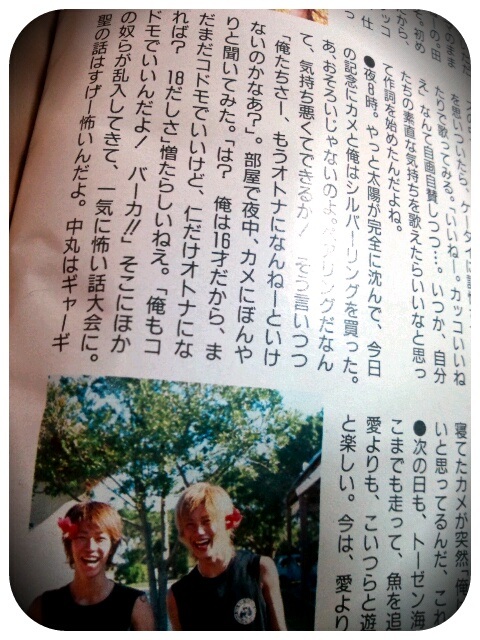 を思いついたら、ケータイに
たりで歌ってみる。「いいねー。カッコいいね
え」なんて自画自賛しつつ…。いつか、自分
たちの素直な気持ちを歌えたらいいなと思っ
て作詞を始めたんだよね。
●夜8時。やっと太陽が完全に沈んで、今日
の記念にカメと俺はシルバーリングを買った。
あ、おそろいじゃないのよ。ペアリングだなん
て、気持ち悪くてできるか! そう言いつつ
「俺たちさー、もうオトナになんねーといけ
ないのかなあ?」。部屋で夜中、カメにぼんや
りと聞いてみた。「は? 俺は16才だから、ま
だまだコドモでいいけど、仁だけオトナにな
れば? 18だしさ」憎たらしいねえ。「俺もコ
ドモでいいんだよ! バーカ!!」そこにほか
の奴らが乱入してきて、一気に怖い話大会に。
聖の話はすげー怖いんだよ。中丸はギャーギ
寝てたカメが突然「俺
いと思ってるんだ、これ
●次の日も、トーゼン海
こまでも走って、魚を追
愛よりも、こいつらと遊
と楽しい。今は、愛より